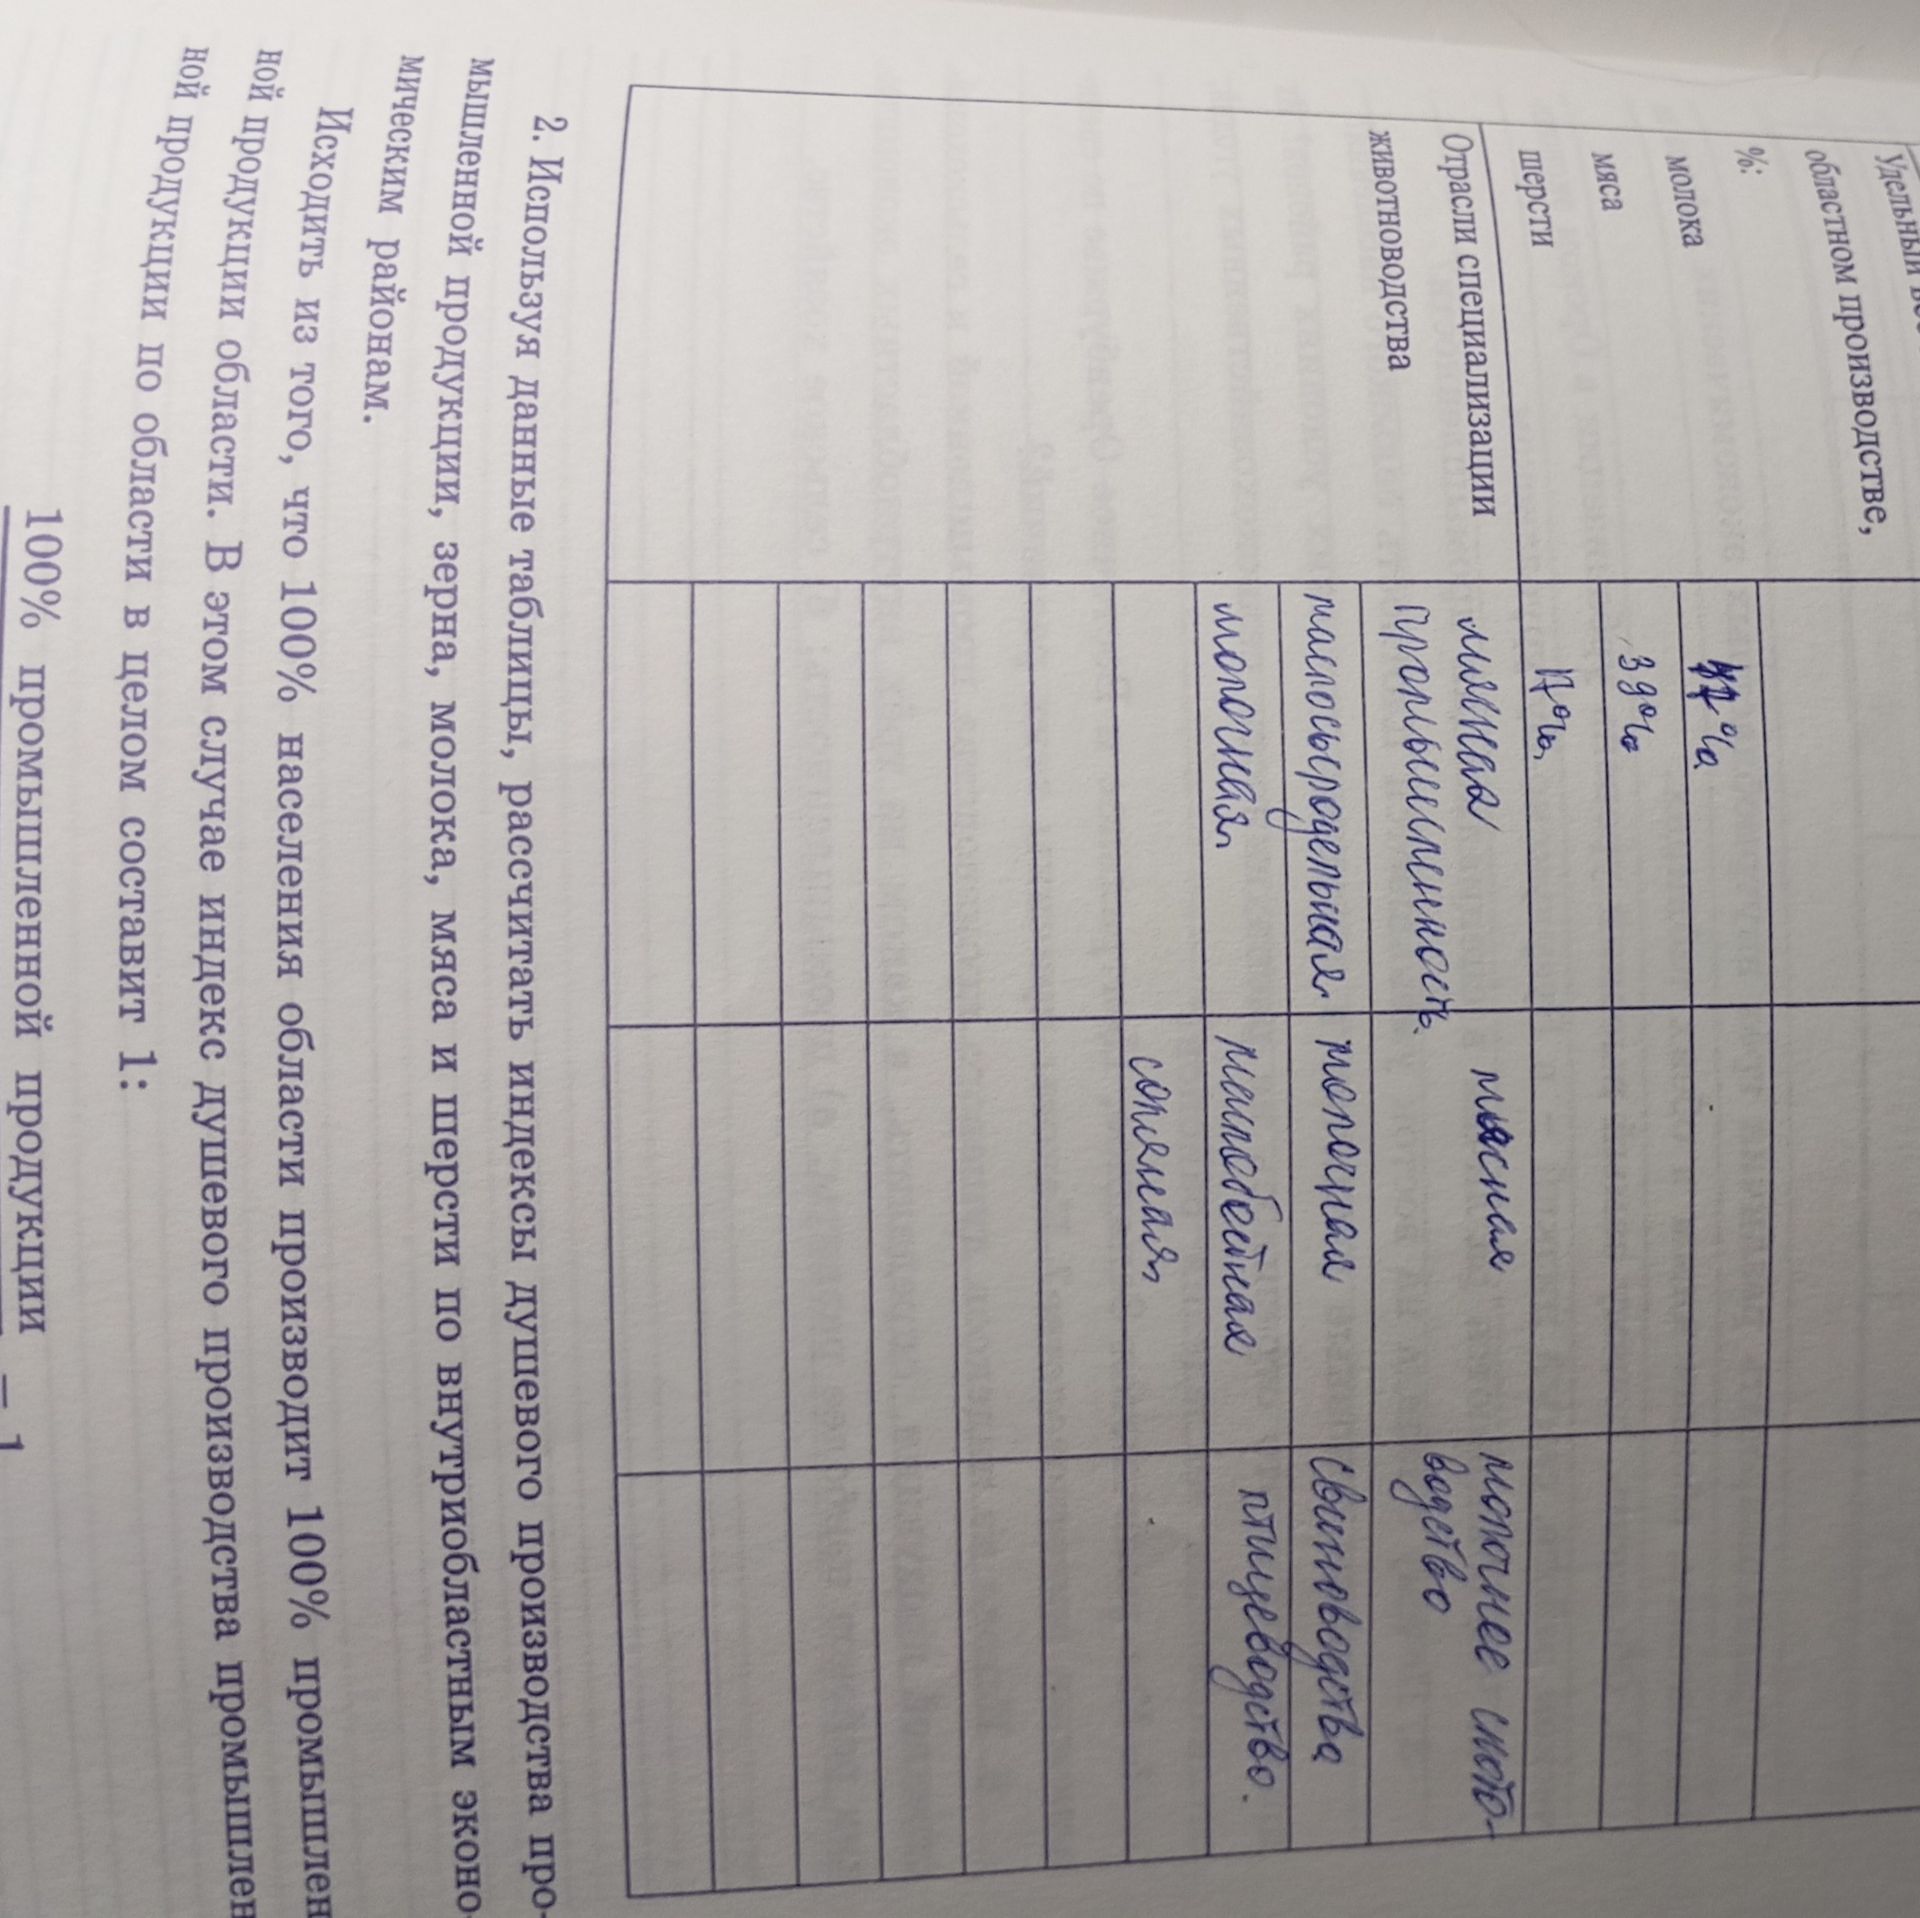 Удельный
областном производстве,
%:
молока 47%
мяса 39%
шерсти 17%
Отрасли специализации мясная мясная молочнее ското-
животноводства промышленность. водство
маслосыродельная молочная свиноводства
молочная маслобойная птицеводство.
соляная
2. Используя данные таблицы, рассчитать индексы душевого производства про-
мышленной продукции, зерна, молока, мяса и шерсти по внутриобластным эконо-
мическим районам.
Исходить из того, что 100% населения области производит 100% промышлен
ной продукции области. В этом случае индекс душевого производства промышлен
ной продукции по области в целом составит 1:
100% промышленной продукции = 1